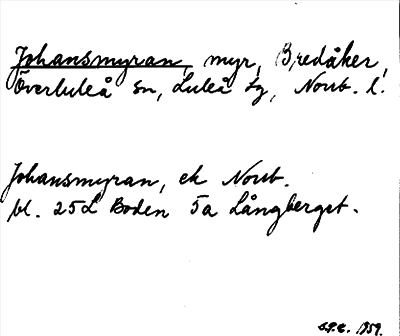 Johansmyran, myr, Bredåker,
Överluleå sn, Luleå lg, Norrb. l.
Johansmyran, ek Norrb.
bl. 25L Boden 5a Långberget.
1959.